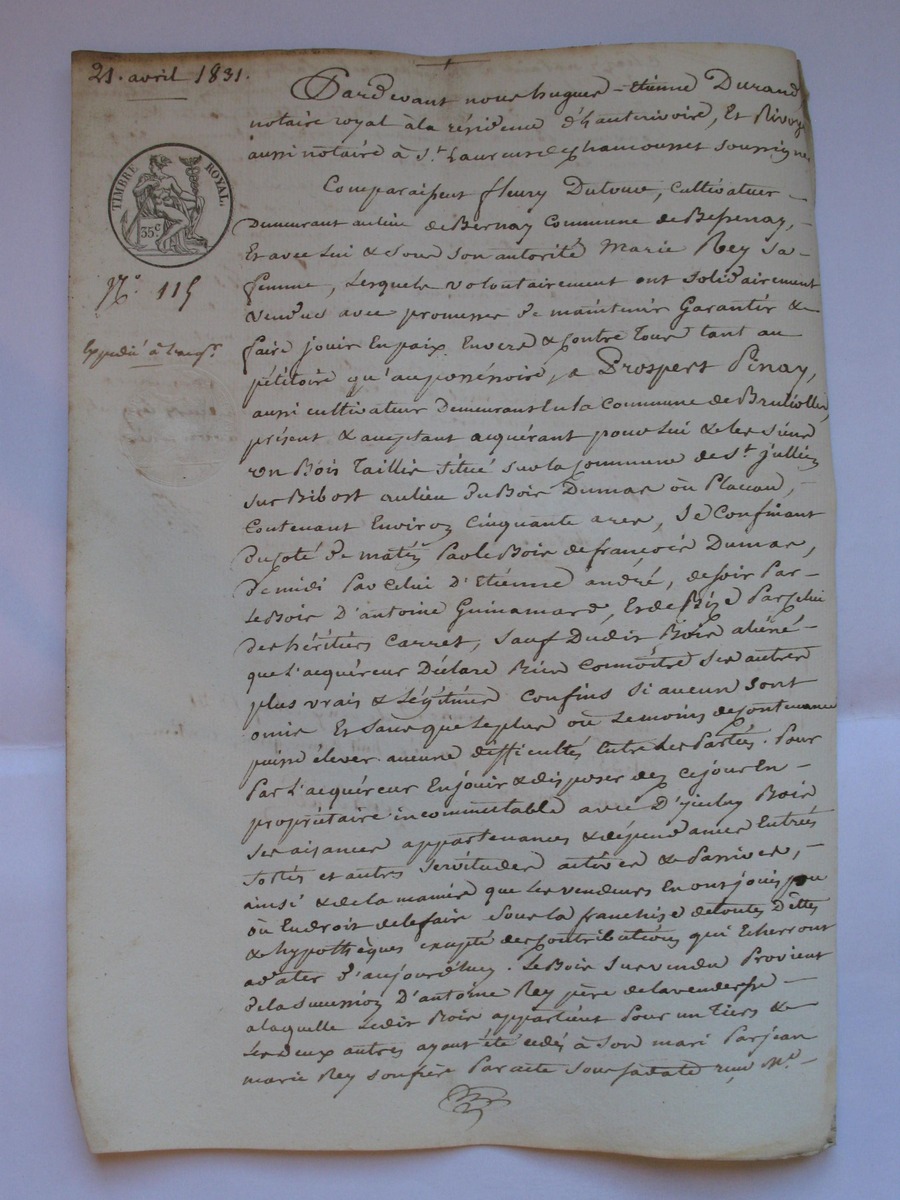 21. avril 1831.
Pardevant nous hugues-Etienne Durand
notaire royal à la résidence d'hauterivoire, Et Rivoy
aussi notaire à St. Laurent de Chamousset soussignés
TIMBRE ROYAL.
35c
Comparaissent fleury Dutour, Cultivateur
Demeurant au lieu de Bernay Commune de Bessenay,
Et avec Lui & Sous Son autorité Marie Rey Sa
No. 115
femme, Lesquels volontairement ont solidairement
vendus avec promesses de maintenir Garantir &
Expédié à l'acqr.
faire jouir En paix Envers & Contre Tous tant au
pétitoire qu'au possessoire, a Prospert Pinay,
aussi cultivateur Demeurant En la Commune de Brulioles,
présent & acceptant acquérant pour Lui & les siens
un Bois Taillis situé sur la Commune de St. jullien
Sur Bibost au lieu du Bois Dumas où Placeau,
Contenant Environ Cinquante ares, Se Confinant
du coté de matin Par le Bois de françois Dumas,
De midi Par Celui D'Etienne andré, de soir Par
Le Bois D'antoine Guinamard, Et de Bize Par Celui
Des héritiers Carret, Sauf Dudit Bois aliéné
que L'acquéreur Déclare Bien Connoître Ses autres
plus vrais & Légitimes Confins Si aucun sont
omis Et Sans que Le plus où Le moins de Contenance
puisse élever aucune difficultés Entre Les Parties. Pour
Par L'acquéreur En jouir & disposer dez Ce jour En
propriétaire incommutable avec D'iceluy Bois
Ses aisances appartenances & dépendances Entrées
Sortés et autres Servitudes actives & Passives,
ainsi & de la manière que Les vendeurs En ont jouis pu
où Eu droit de le faire Sous la franchise de toutes Dettes
& hypothèques excepté des Contributions qui Echerront
a dater d'aujourd'huy. Le Bois Survendu Provient
de la Succession D'antoine Rey père de la venderesse
a laquelle Ledit Bois appartient Pour un Tiers &
Les Deux autres ayant été cédés à Son mari Par jean
marie Rey Son frère Par acte Sous Sa date reçu Me.